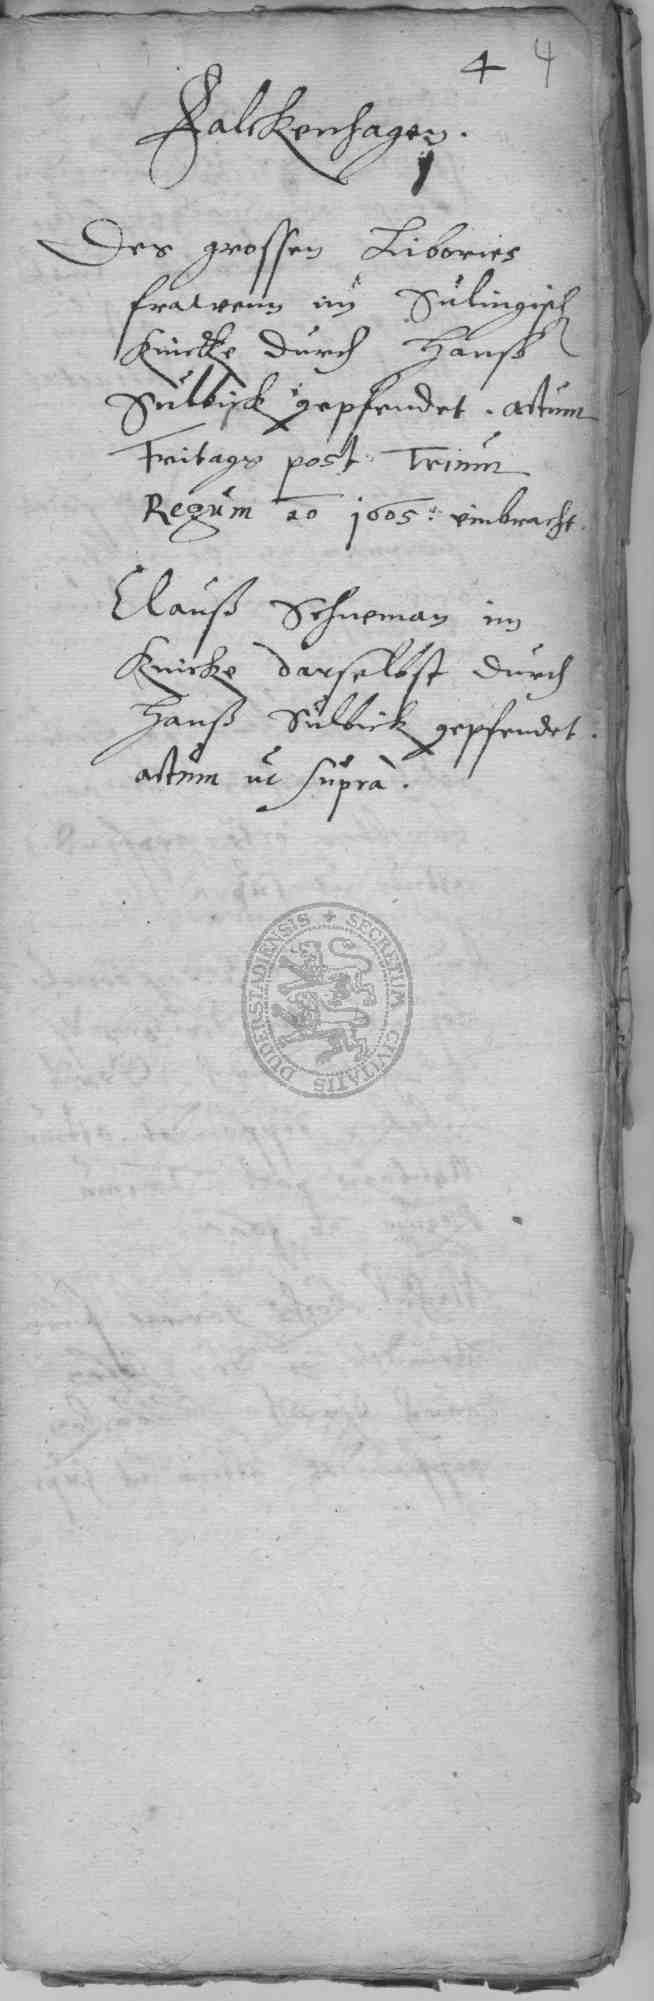 4 4
Falckenhagen.
Des grossen Libories
frawenn im Sulingisch
Knicke durch Hanß
Sulbick gepfendet. actum
Freitags post Trium
Regum ao 1605: einbracht.
Clauß Schueman im
Knicke darselbst durch
Hanß Sulbick gepfendet.
actum ut supra.
SECRETUM CIVITATIS DUDERSTADIENSIS